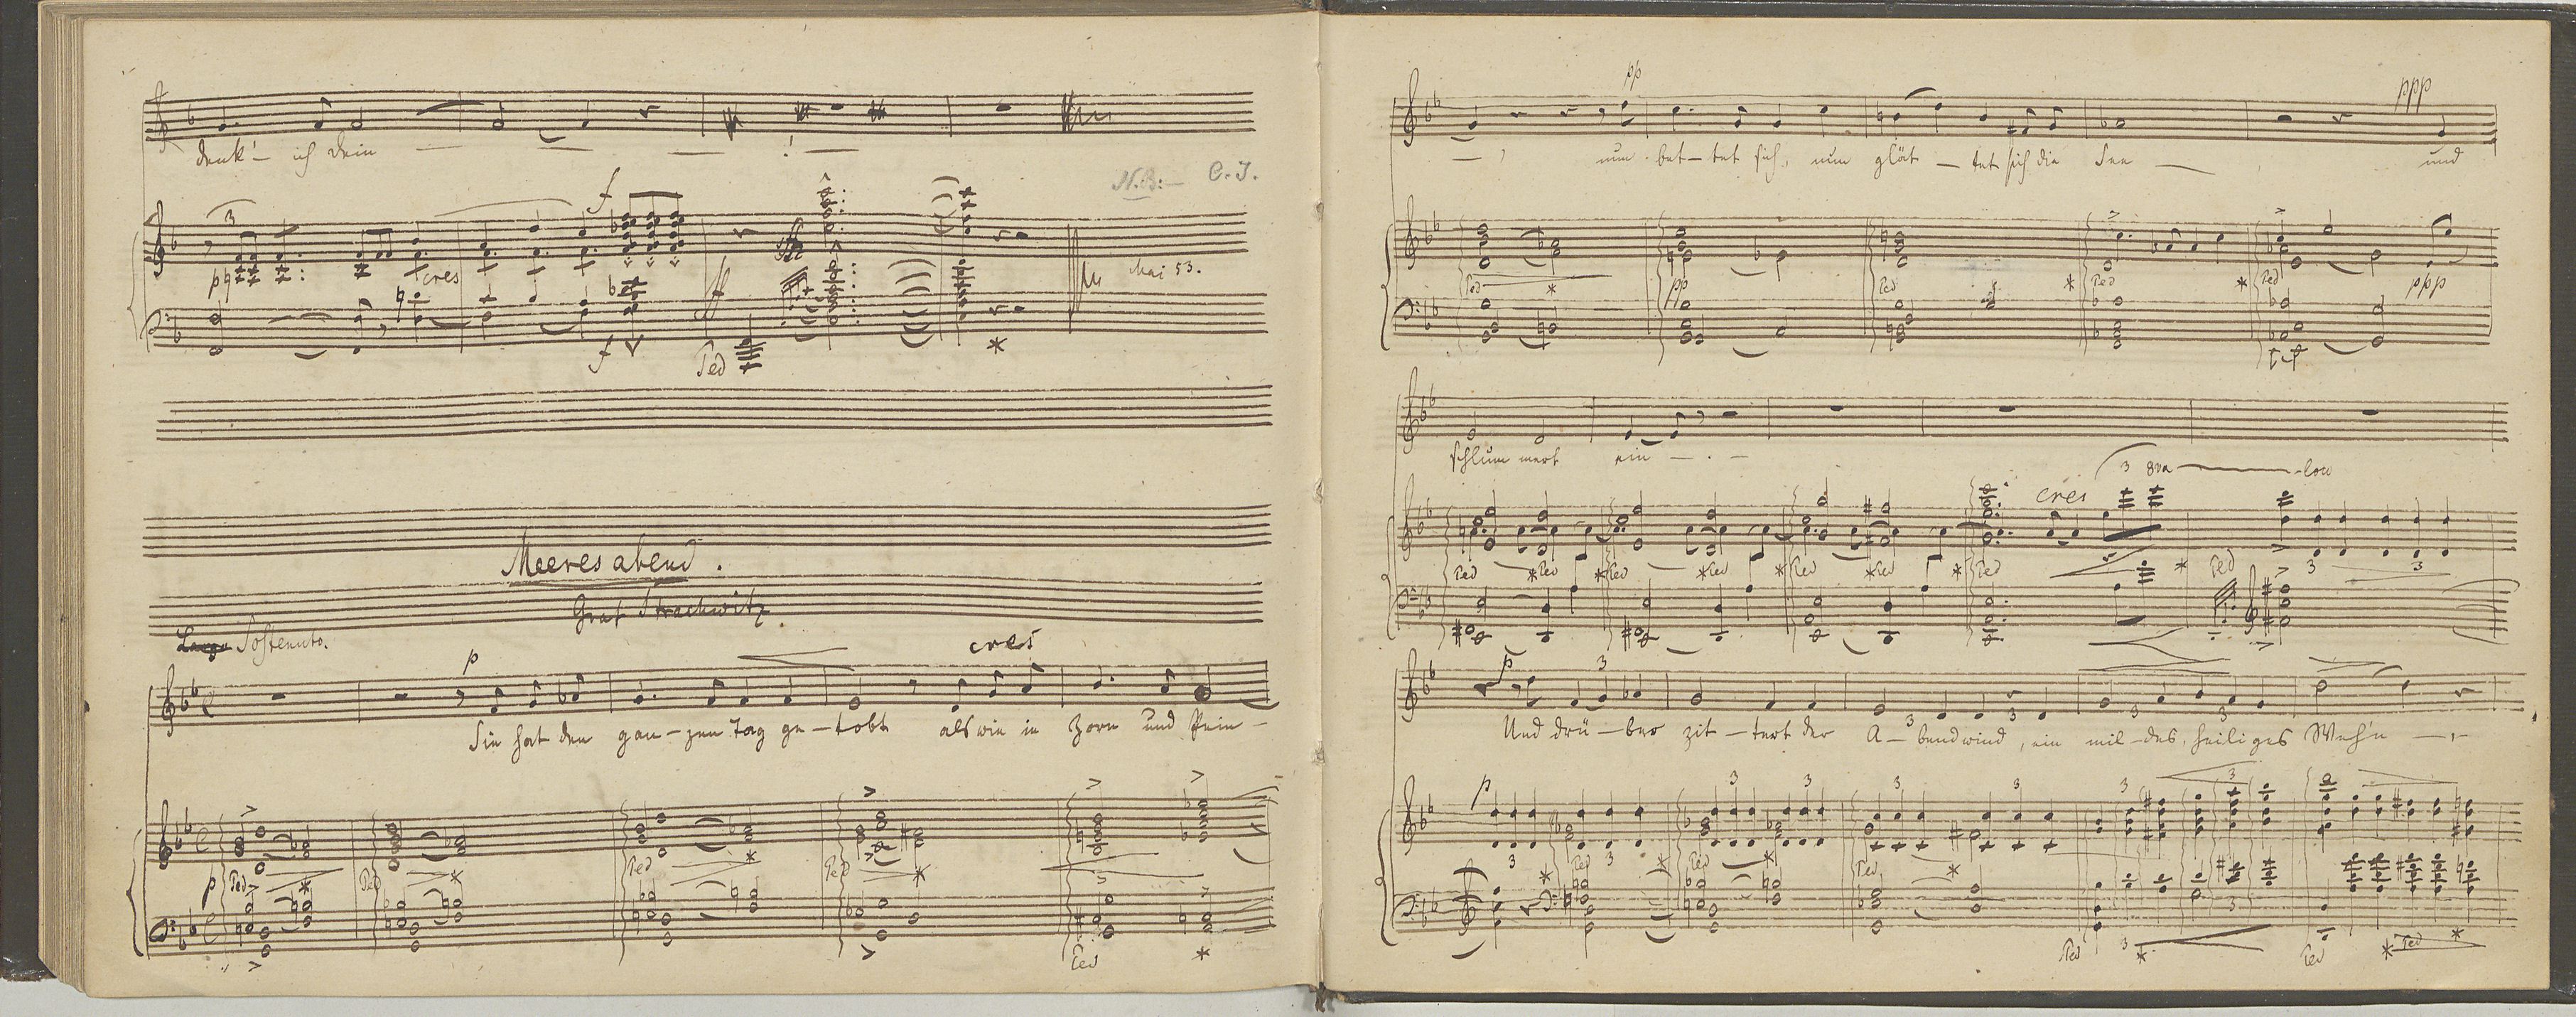 denk' ich dein — — — ! —
3
f
N.B.: — C. J.
pp
cres
ff
Mai 53.
f
Ped
*
Meeresabend.
Graf Strachwitz.
Largo Sostenuto.
p
cres
Sie hat den gan-zen Tag ge-tobt als wie in Zorn und Pein-
Ped * Ped * Ped * Ped *
p
Ped *
pp
ppp
—, nun bet-tet sich, nun glät-tet sich die See — und
Ped * pp Ped * Ped * Ped ppp
schlum mert ein — . —
cres 3 8va loco
Ped * Ped * Ped * Ped * Ped * Ped * Ped * Ped 3 3
p 3
Und drü-ber zit-tert der A-bendwind, ein mil-des, heiliges Weh'n —,-
3 3 3 3
p 3 3 3 3 3 3
3 Ped 3 * Ped * Ped *
3
Ped 3 * Ped * Ped *